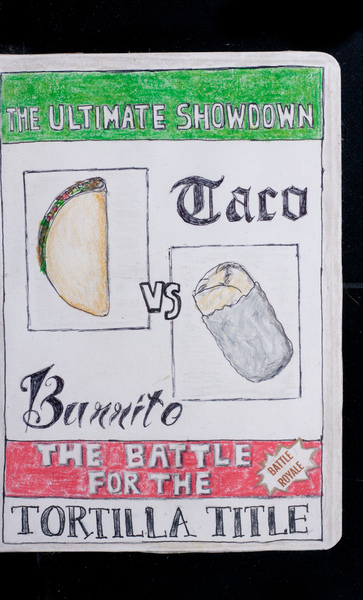 THE ULTIMATE SHOWDOWN
Taco
VS
Burrito
THE BATTLE
FOR THE
BATTLE
ROYALE
TORTILLA TITLE